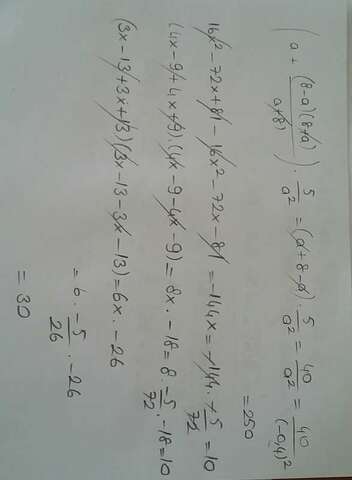 (a + (8-a)(8+a)/(a+8)) · 5/a² = (a+8-a) · 5/a² = 40/a² = 40/(-0,4)²
= 250
16x² - 72x + 81 - 16x² - 72x - 81 = -144x = -144 · -5/72 = 10
(4x-9+4x+9)·(4x-9-4x-9) = 8x · -18 = 8 · -5/72 · -18 = 10
(3x-13+3x+13)(3x-13-3x-13) = 6x · -26
= 6 · -5/26 · -26
= 30